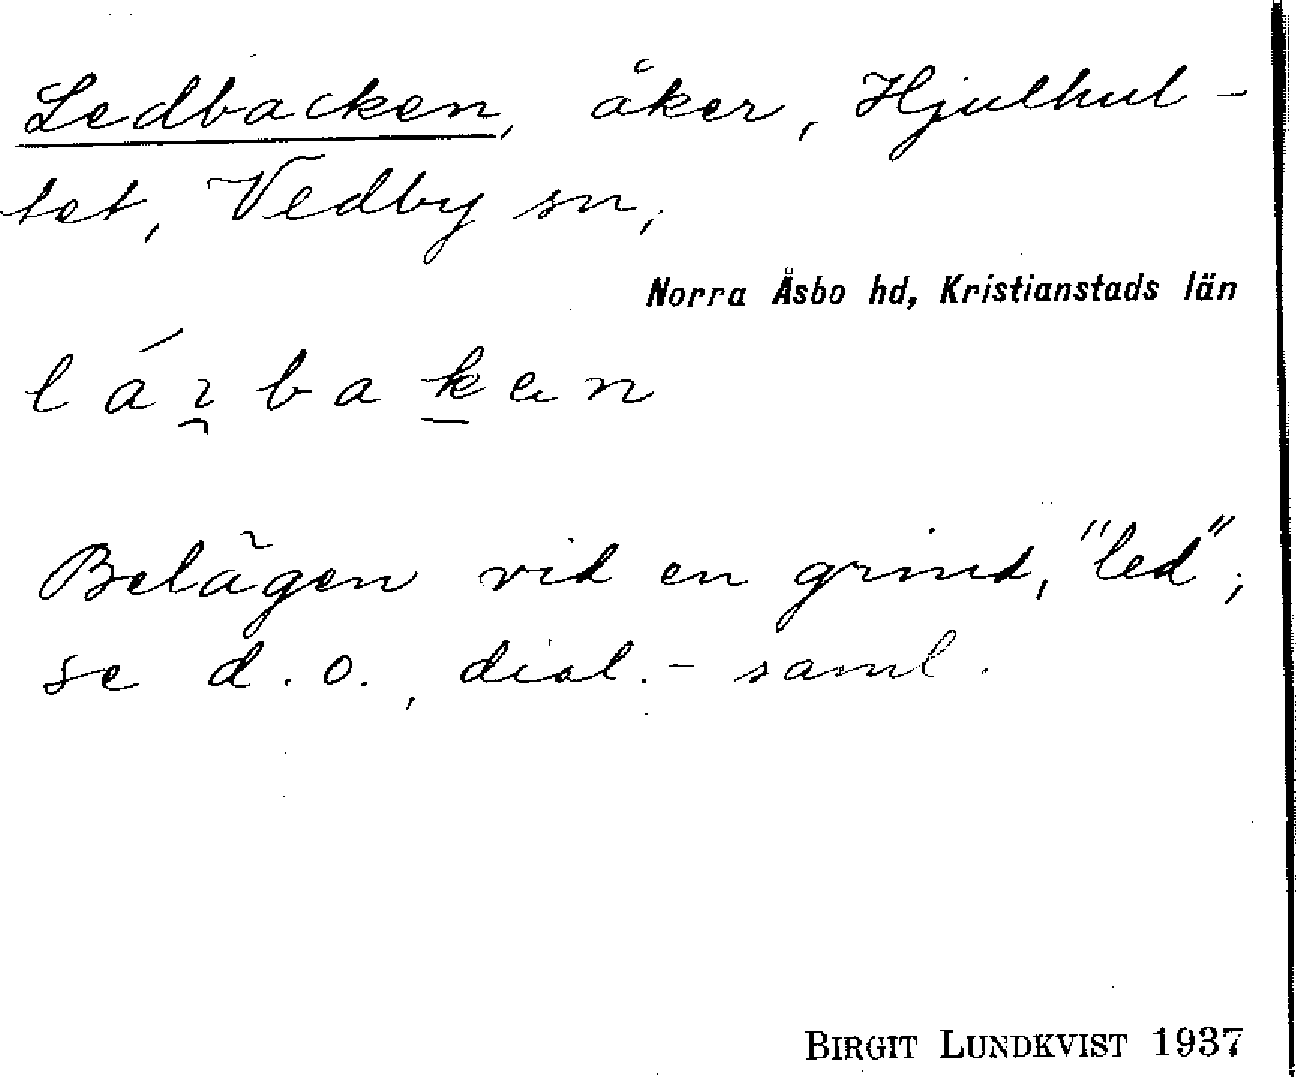 Ledbacken, åker, Hjulhul-
tet, Vedby sn,
Norra Åsbo hd, Kristianstads län
Belägen vid en grind, "led",
se d. o., dial.-saml.
BIRGIT LUNDKVIST 1937